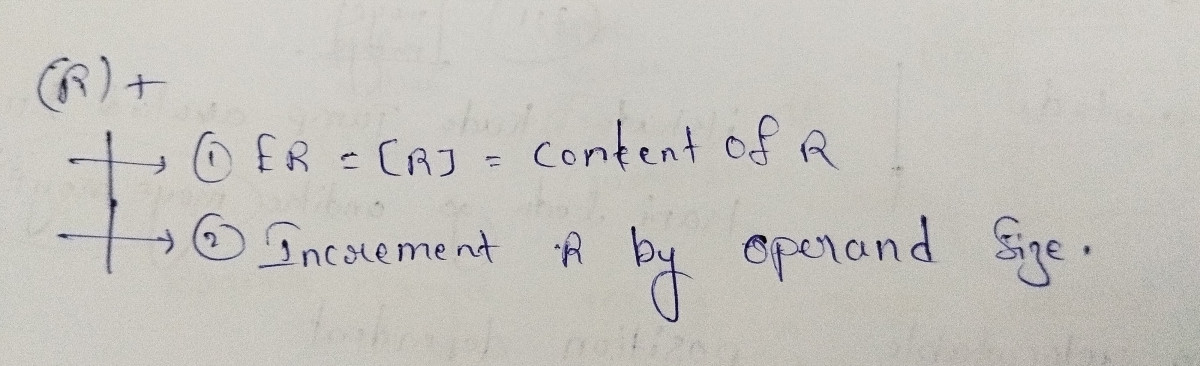 (R)+
→ ① ER = [R] = content of R
→ ② Increment R by operand size.